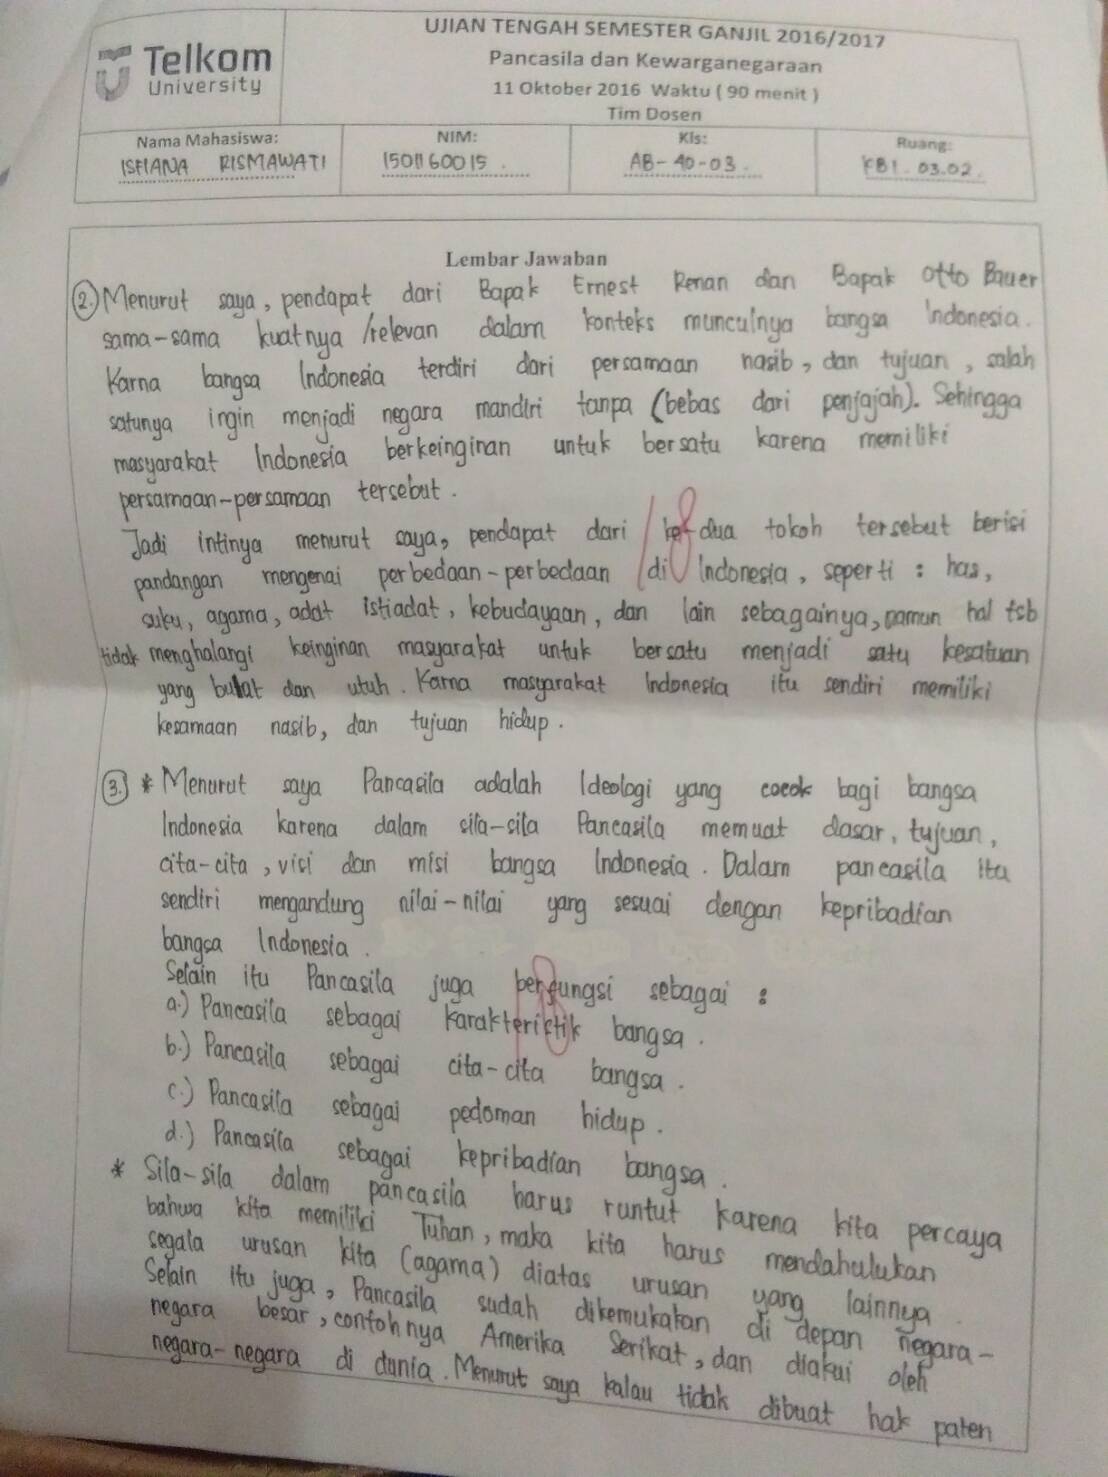 Telkom
University
UJIAN TENGAH SEMESTER GANJIL 2016/2017
Pancasila dan Kewarganegaraan
11 Oktober 2016 Waktu ( 90 menit )
Tim Dosen
Nama Mahasiswa:
ISFIANA RISMAWATI
NIM:
1501160015.
Kls:
AB-40-03.
Ruang:
KB1.03.02.
Lembar Jawaban
2. Menurut saya, pendapat dari Bapak Ernest Renan dan Bapak Otto Bauer
sama-sama kuatnya /relevan dalam konteks munculnya bangsa Indonesia.
Karna bangsa Indonesia terdiri dari persamaan nasib, dan tujuan, salah
satunya ingin menjadi negara mandiri tanpa (bebas dari penjajah). Sehingga
masyarakat Indonesia berkeinginan untuk bersatu karena memiliki
persamaan-persamaan tersebut.
Jadi intinya menurut saya, pendapat dari ke-dua tokoh tersebut berisi
pandangan mengenai perbedaan-perbedaan di Indonesia, seperti : has,
suku, agama, adat istiadat, kebudayaan, dan lain sebagainya, namun hal tsb
tidak menghalangi keinginan masyarakat untuk bersatu menjadi satu kesatuan
yang bulat dan utuh. Karna masyarakat Indonesia itu sendiri memiliki
kesamaan nasib, dan tujuan hidup.
3. * Menurut saya Pancasila adalah Ideologi yang cocok bagi bangsa
Indonesia karena dalam sila-sila Pancasila memuat dasar, tujuan,
cita-cita, visi dan misi bangsa Indonesia. Dalam pancasila itu
sendiri mengandung nilai-nilai yang sesuai dengan kepribadian
bangsa Indonesia.
Selain itu Pancasila juga berfungsi sebagai :
a.) Pancasila sebagai karakteristik bangsa.
b.) Pancasila sebagai cita-cita bangsa.
c.) Pancasila sebagai pedoman hidup.
d.) Pancasila sebagai kepribadian bangsa.
* Sila-sila dalam pancasila harus runtut karena kita percaya
bahwa kita memiliki Tuhan, maka kita harus mendahulukan
segala urusan kita (agama) diatas urusan yang lainnya.
Selain itu juga, Pancasila sudah dikemukakan di depan negara-
negara besar, contohnya Amerika Serikat, dan diakui oleh
negara-negara di dunia. Menurut saya kalau tidak dibuat hak paten